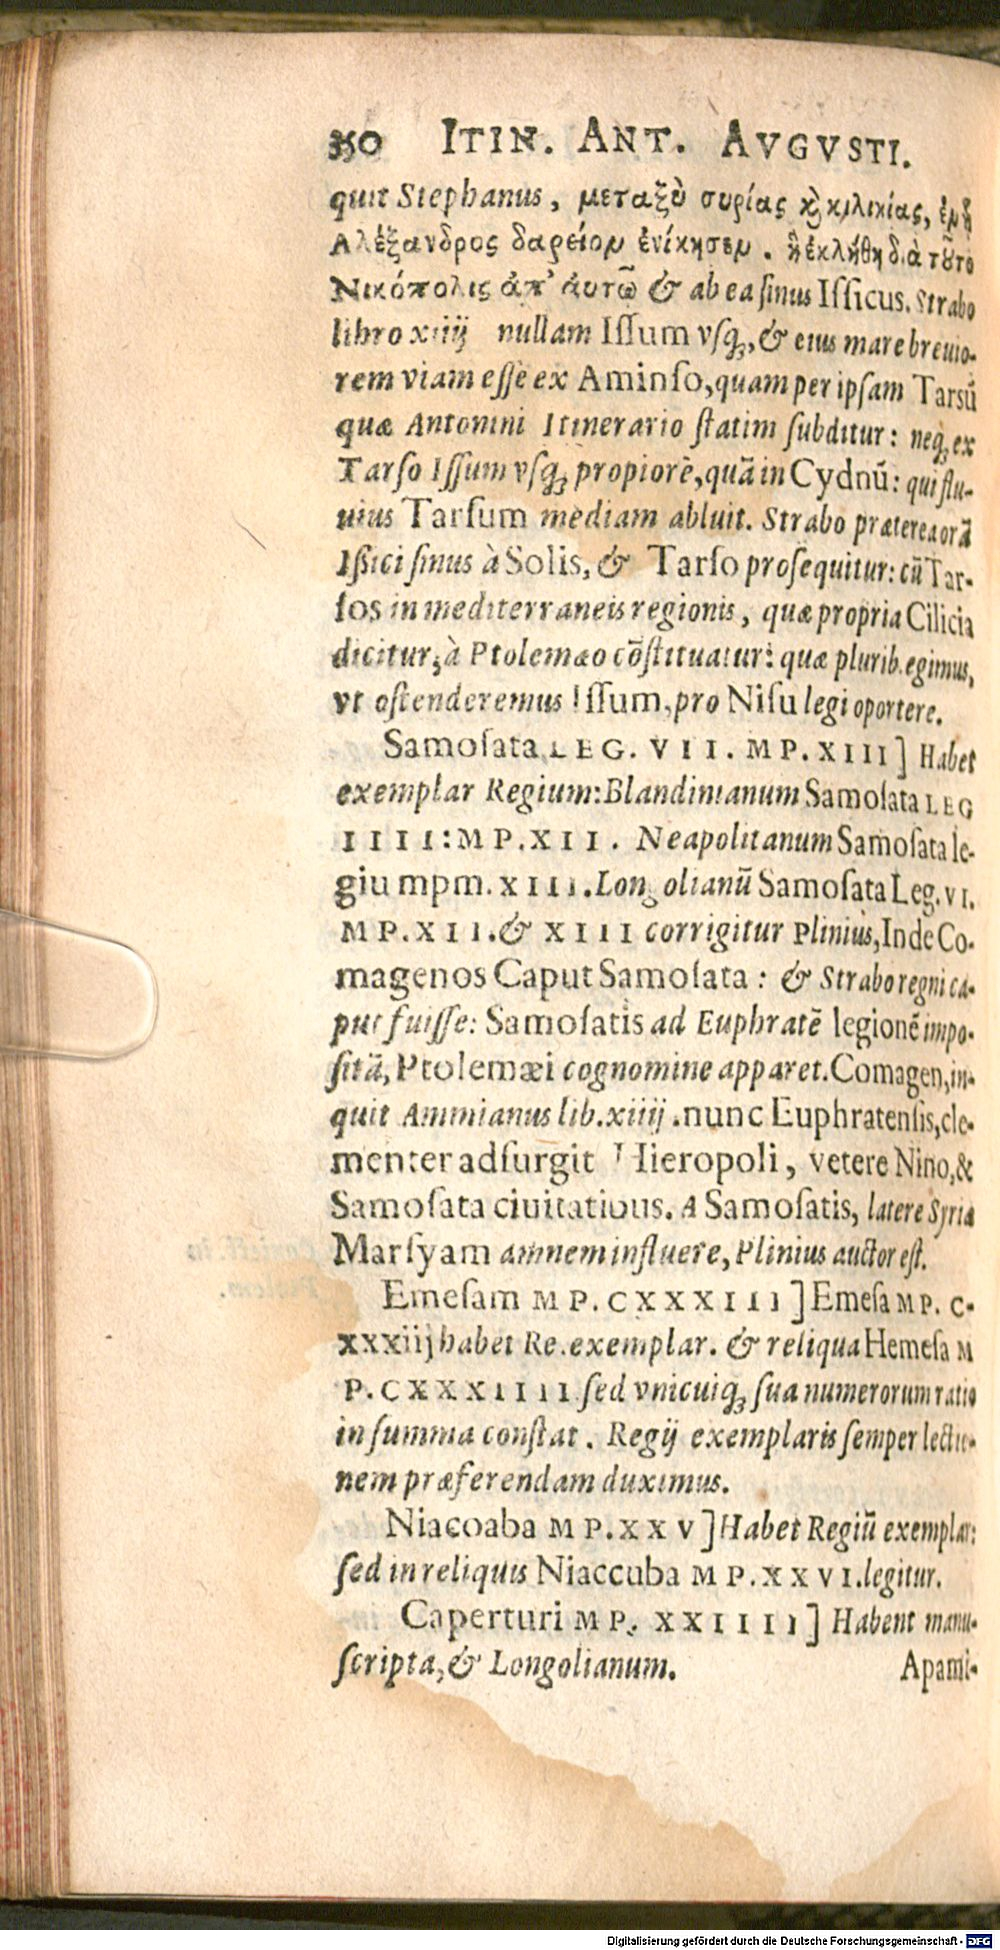 350 ITIN. ANT. AVGVSTI.
quit Stephanus, μεταξὺ συρίας καὶ κιλικίας, ἐφ᾽ ᾗ
Αλέξανδρος δαρείον ἐνίκησεν. ἣ ἐκλήθη διὰ τοῦτο
Νικόπολις ἀπ᾽ ἀυτοῦ & ab ea sinus Issicus. Strabo
libro xiiij nullam Issum vsq;, & eius mare breuio-
rem viam esse ex Aminso, quam per ipsam Tarsū
quæ Antonini Itinerario statim subditur: neq; ex
Tarso Issum vsq; propiorē, quā in Cydnū: qui flu-
uius Tarsum mediam abluit. Strabo præterea orā
Issici sinus à Solis, & Tarso prosequitur: cū Tar-
sos in mediterraneis regionis, quæ propria Cilicia
dicitur, à Ptolemæo cōstituatur: quæ plurib. egimus,
vt ostenderemus Issum, pro Nisu legi oportere.
Samosata LEG. VII. MP. XIII] Habet
exemplar Regium: Blandinianum Samosata LEG
IIII: MP. XII. Neapolitanum Samosata le-
giu mpm. XIII. Longolianū Samosata Leg. VI.
MP. XII. & XIII corrigitur Plinius, Inde Co-
magenos Caput Samosata: & Strabo regni ca-
put fuisse: Samosatis ad Euphratē legionē impo-
sitā, Ptolemæi cognomine apparet. Comagen, in-
quit Ammianus lib. xiiij. nunc Euphratensis, cle-
menter adsurgit Hieropoli, vetere Nino, &
Samosata ciuitatibus. A Samosatis, latere Syria
Marsyam amnem influere, Plinius auctor est.
Emesam MP. CXXXIII] Emesa MP. C-
xxxiij habet Re. exemplar. & reliqua Hemesa M
P. CXXXIIII sed vnicuiq; sua numerorum ratio
in summa constat. Regij exemplaris semper lectio-
nem præferendam duximus.
Niacoaba MP. XXV] Habet Regiū exemplar:
sed in reliquis Niaccuba MP. XXVI. legitur.
Caperturi MP. XXIIII] Habent manu-
scripta, & Longolianum.
Apami-
Digitalisierung gefördert durch die Deutsche Forschungsgemeinschaft - DFG